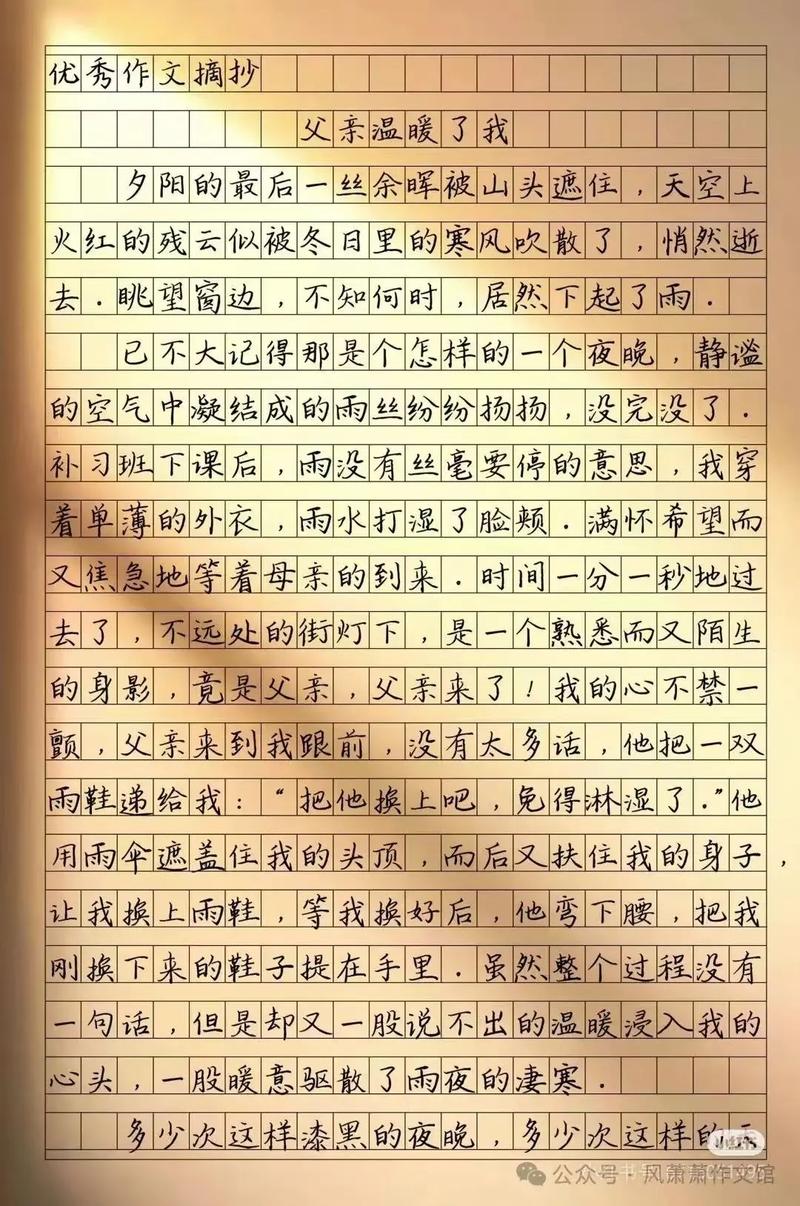 优秀作文摘抄
父亲温暖了我
夕阳的最后一丝余晖被山头遮住，天空上
火红的残云似被冬日里的寒风吹散了，悄然逝
去．眺望窗边，不知何时，居然下起了雨．
已不大记得那是个怎样的一个夜晚，静谧
的空气中凝结成的雨丝纷纷扬扬，没完没了．
补习班下课后，雨没有丝毫要停的意思，我穿
着单薄的外衣，雨水打湿了脸颊．满怀希望而
又焦急地等着母亲的到来．时间一分一秒地过
去了，不远处的街灯下，是一个熟悉而又陌生
的身影，竟是父亲，父亲来了！我的心不禁一
颤，父亲来到我跟前，没有太多话，他把一双
雨鞋递给我：“把他换上吧，免得淋湿了．”他
用雨伞遮盖住我的头顶，而后又扶住我的身子，
让我换上雨鞋，等我换好后，他弯下腰，把我
刚换下来的鞋子提在手里．虽然整个过程没有
一句话，但是却又一股说不出的温暖浸入我的
心头，一股暖意驱散了雨夜的凄寒．
多少次这样漆黑的夜晚，多少次这样的
小红书
公众号·风萧萧作文馆